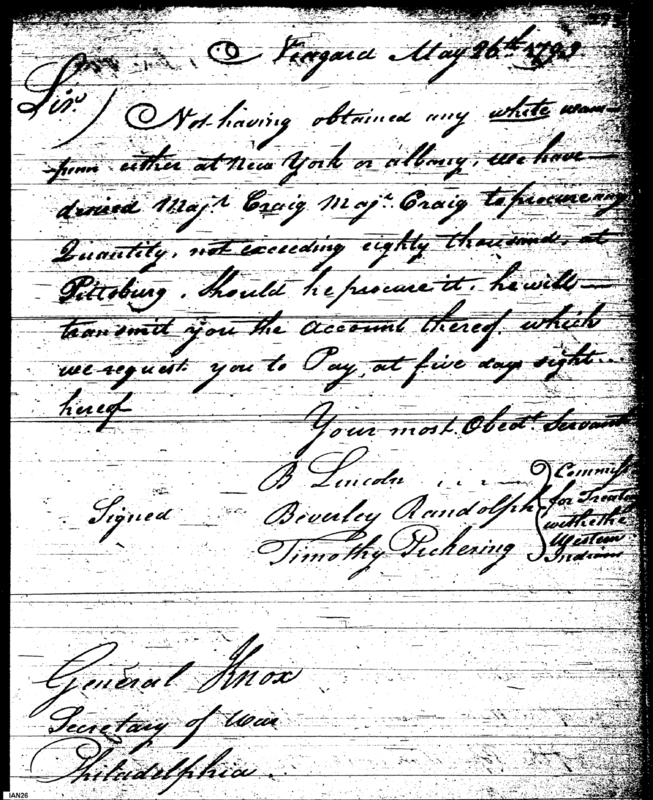 Niagara May 26th 1793.
Sir.
Not having obtained any white wam–
–pum either at New York or albany, we have –
desired Majr. Craig Majr. Craig to procure any
Quantity, not exceeding eighty thousand, at
Pittsburg. Should he procure it, he will –
transmit you the account thereof, which
we request you to Pay, at five days sight..
hereof
Your most Obedt. Servants
B Lincoln
Signed Beverley Randolph
Timothy Pickering
Commissrs
for Treaty
with the
Western
Indians
General Knox
Secretary of War
Philadelphia.
IAN26